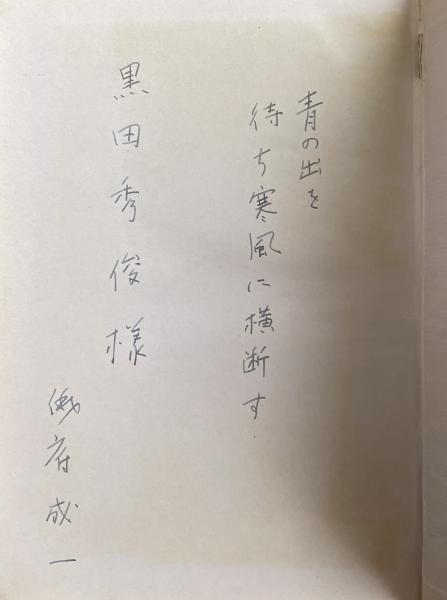 青の出を
待ち寒風に横断す
黒田秀俊様
俵府成一